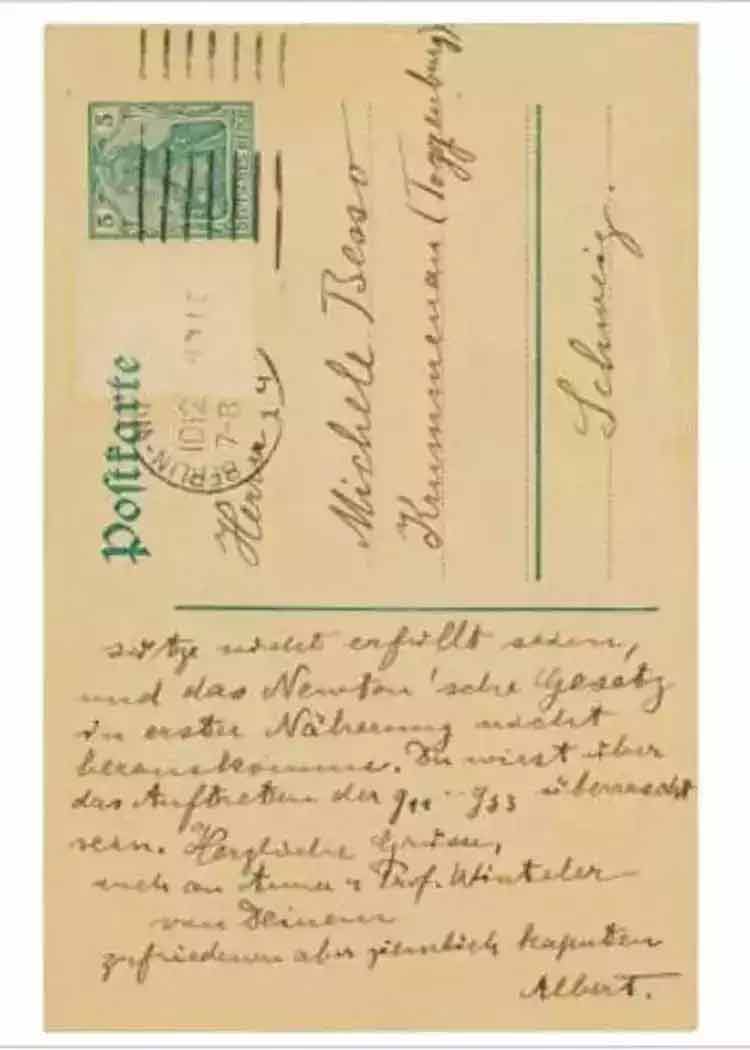 5 5
DEUTSCHES REICH
Postkarte
BERLIN-W
10 12
7-8
Herrn
Michele Besso
Krummenau (Toggenburg)
Schweiz.
sätze nicht erfüllt seien,
und das Newton'sche Gesetz
in erster Näherung nicht
herauskomme. Du wirst über
das Auftreten der g11 -- g33 überrascht
sein. Herzliche Grüsse,
auch an Anna & Prof. Winteler
von Deinem
zufriedenen aber ziemlich kaputen
Albert.